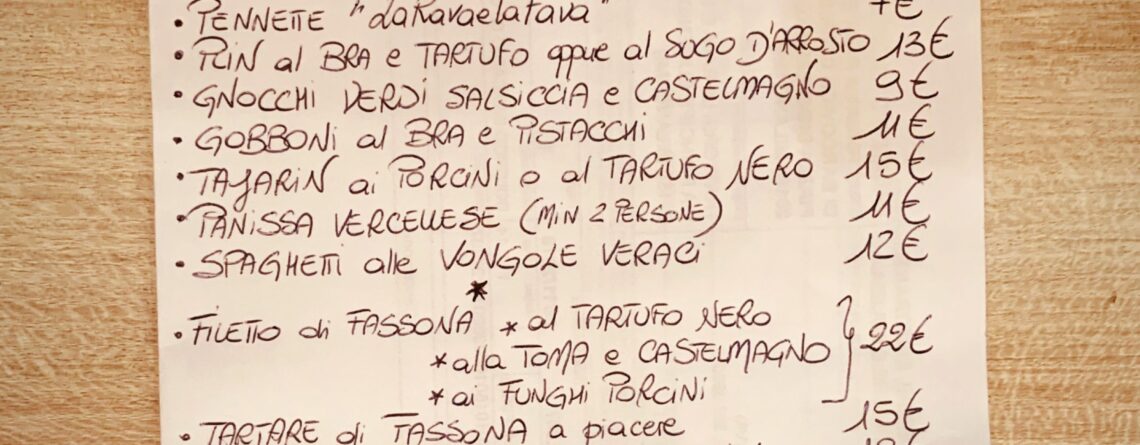 • PENNETTE "LaRavaelafava" 7€
• PLIN al BRA e TARTUFO oppure al SUGO D'ARROSTO 13€
• GNOCCHI VERDI SALSICCIA e CASTELMAGNO 9€
• GOBBONI al BRA e PISTACCHI 11€
• TAJARIN ai PORCINI o al TARTUFO NERO 15€
• PANISSA VERCELLESE (MIN 2 PERSONE) 11€
• SPAGHETTI alle VONGOLE VERACI 12€
*
• FILETTO di FASSONA * al TARTUFO NERO
* alla TOMA e CASTELMAGNO } 22€
* ai FUNGHI PORCINI
• TARTARE di FASSONA a piacere 15€